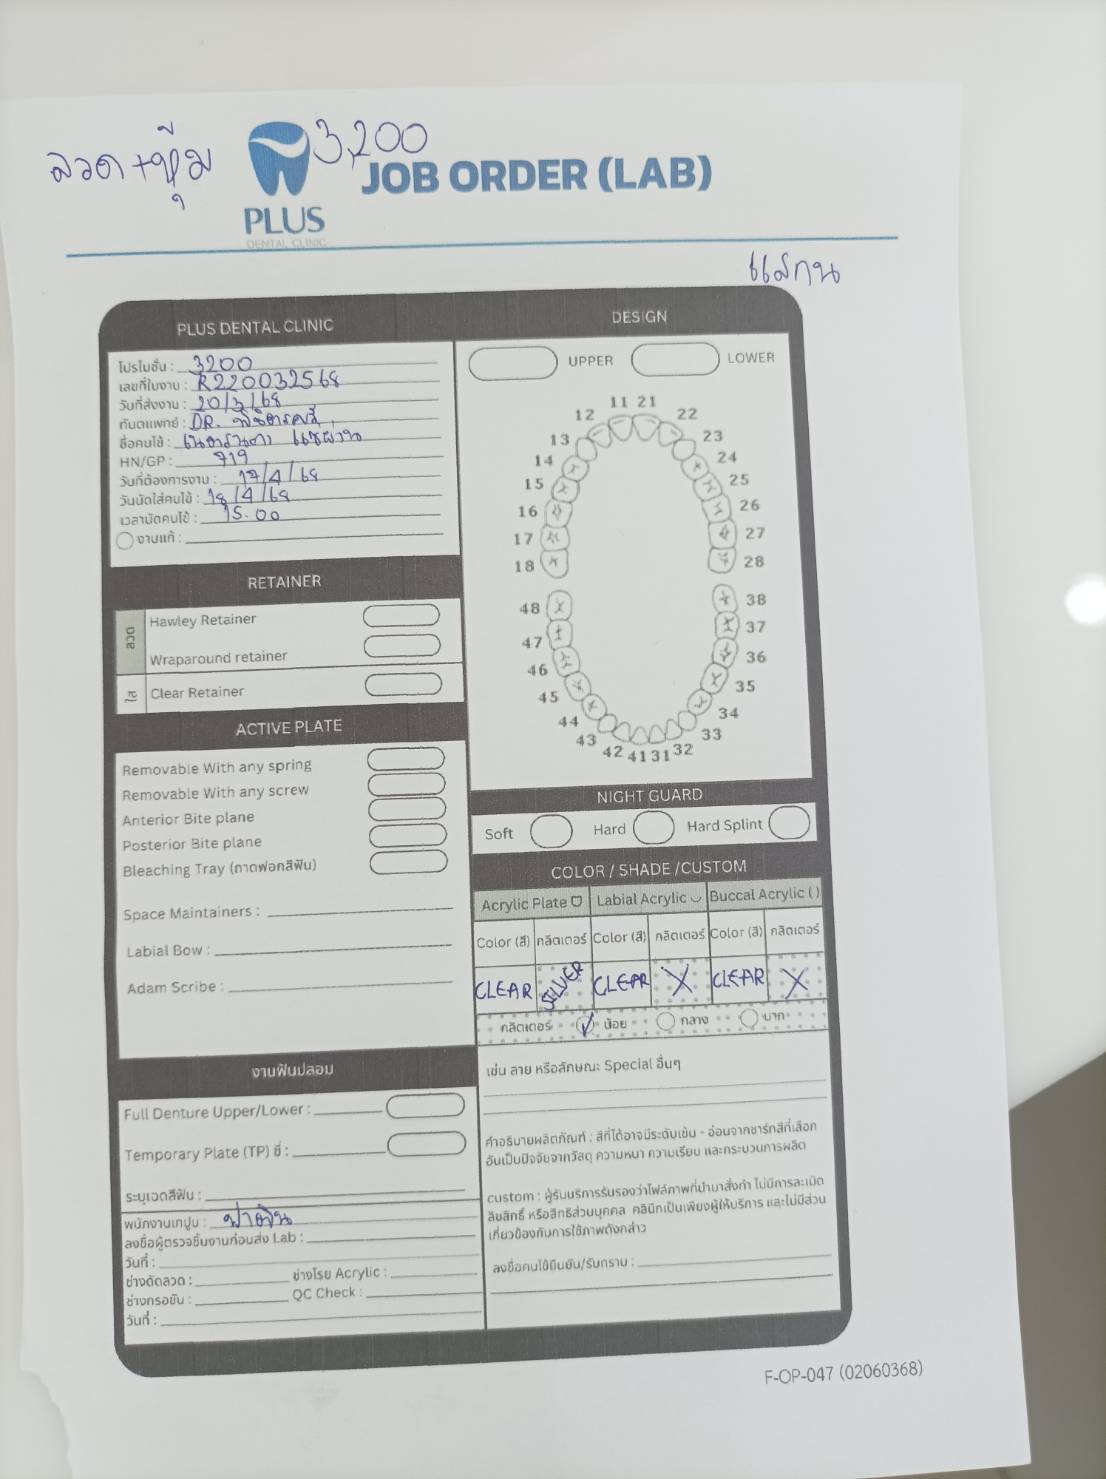 ลวด+หุ้ม 3,200
JOB ORDER (LAB)
PLUS
DENTAL CLINIC
แสกน
PLUS DENTAL CLINIC
โปรโมชั่น : 3200
เลขที่ใบงาน : R220032568
วันที่ส่งงาน : 20/3/68
ทันตแพทย์ : DR.
ชื่อคนไข้ :
HN/GP : 719
วันที่ต้องการงาน : 17/4/68
วันนัดใส่คนไข้ : 18/4/68
เวลานัดคนไข้ : 15.00
งานแก้ :
RETAINER
ลวด
Hawley Retainer
Wraparound retainer
ใส
Clear Retainer
ACTIVE PLATE
Removable With any spring
Removable With any screw
Anterior Bite plane
Posterior Bite plane
Bleaching Tray (ถาดฟอกสีฟัน)
Space Maintainers :
Labial Bow :
Adam Scribe :
งานฟันปลอม
Full Denture Upper/Lower :
Temporary Plate (TP) ซี่ :
ระบุเฉดสีฟัน :
พนักงานเทปูน : ฟาติน
ลงชื่อผู้ตรวจชิ้นงานก่อนส่ง Lab :
วันที่ :
ช่างดัดลวด : ช่างโรย Acrylic :
ช่างกรอขัด : QC Check :
วันที่ :
DESIGN
UPPER LOWER
11 21
12 22
13 23
14 24
15 25
16 26
17 27
18 28
48 38
47 37
46 36
45 35
44 34
43 33
42 41 31 32
NIGHT GUARD
Soft Hard Hard Splint
COLOR / SHADE /CUSTOM
Acrylic Plate Labial Acrylic Buccal Acrylic ( )
Color (สี) กลิตเตอร์ Color (สี) กลิตเตอร์ Color (สี) กลิตเตอร์
CLEAR SILVER CLEAR X CLEAR X
กลิตเตอร์ ✓ น้อย กลาง มาก
เช่น ลาย หรือลักษณะ Special อื่นๆ
คำอธิบายผลิตภัณฑ์ : สีที่ได้อาจมีระดับเข้ม - อ่อนจากชาร์ทสีที่เลือก
อันเป็นปัจจัยจากวัสดุ ความหนา ความเรียบ และกระบวนการผลิต
custom : ผู้รับบริการรับรองว่าไฟล์ภาพที่นำมาสั่งทำ ไม่มีการละเมิด
ลิขสิทธิ์ หรือสิทธิส่วนบุคคล คลินิกเป็นเพียงผู้ให้บริการ และไม่มีส่วน
เกี่ยวข้องกับการใช้ภาพดังกล่าว
ลงชื่อคนไข้ยืนยัน/รับทราบ :
F-OP-047 (02060368)